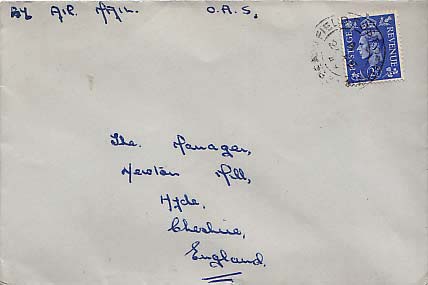 By AIR MAIL. O.A.S.
FIELD
POSTAGE REVENUE
2½D
The Manager,
Newton Mill,
Hyde,
Cheshire,
England.